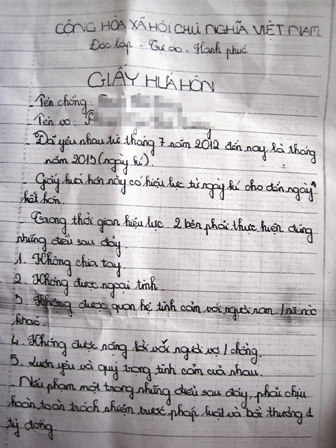 CỘNG HÒA XÃ HỘI CHỦ NGHĨA VIỆT NAM
Độc lập - Tự do - Hạnh phúc
GIẤY HỨA HÔN
- Tên chồng:
- Tên vợ:
- Đã yêu nhau từ tháng 7 năm 2012 đến nay là tháng
năm 2013 (ngày kí).
Giấy hứa hôn này có hiệu lực từ ngày kí cho đến ngày
kết hôn.
- Trong thời gian hiệu lực 2 bên phải thực hiện đúng
những điều sau đây.
1. Không chia tay.
2. Không được ngoại tình
3 Không được quan hệ tình cảm với người nam / nữ nào
khác
4. Không được nóng với người vợ / chồng.
5. Luôn yêu và quý trọng tình cảm của nhau.
- Nếu phạm một trong những điều sau đây, phải chịu
hoàn toàn trách nhiệm trước pháp luật và bồi thường 1
tỷ đồng.